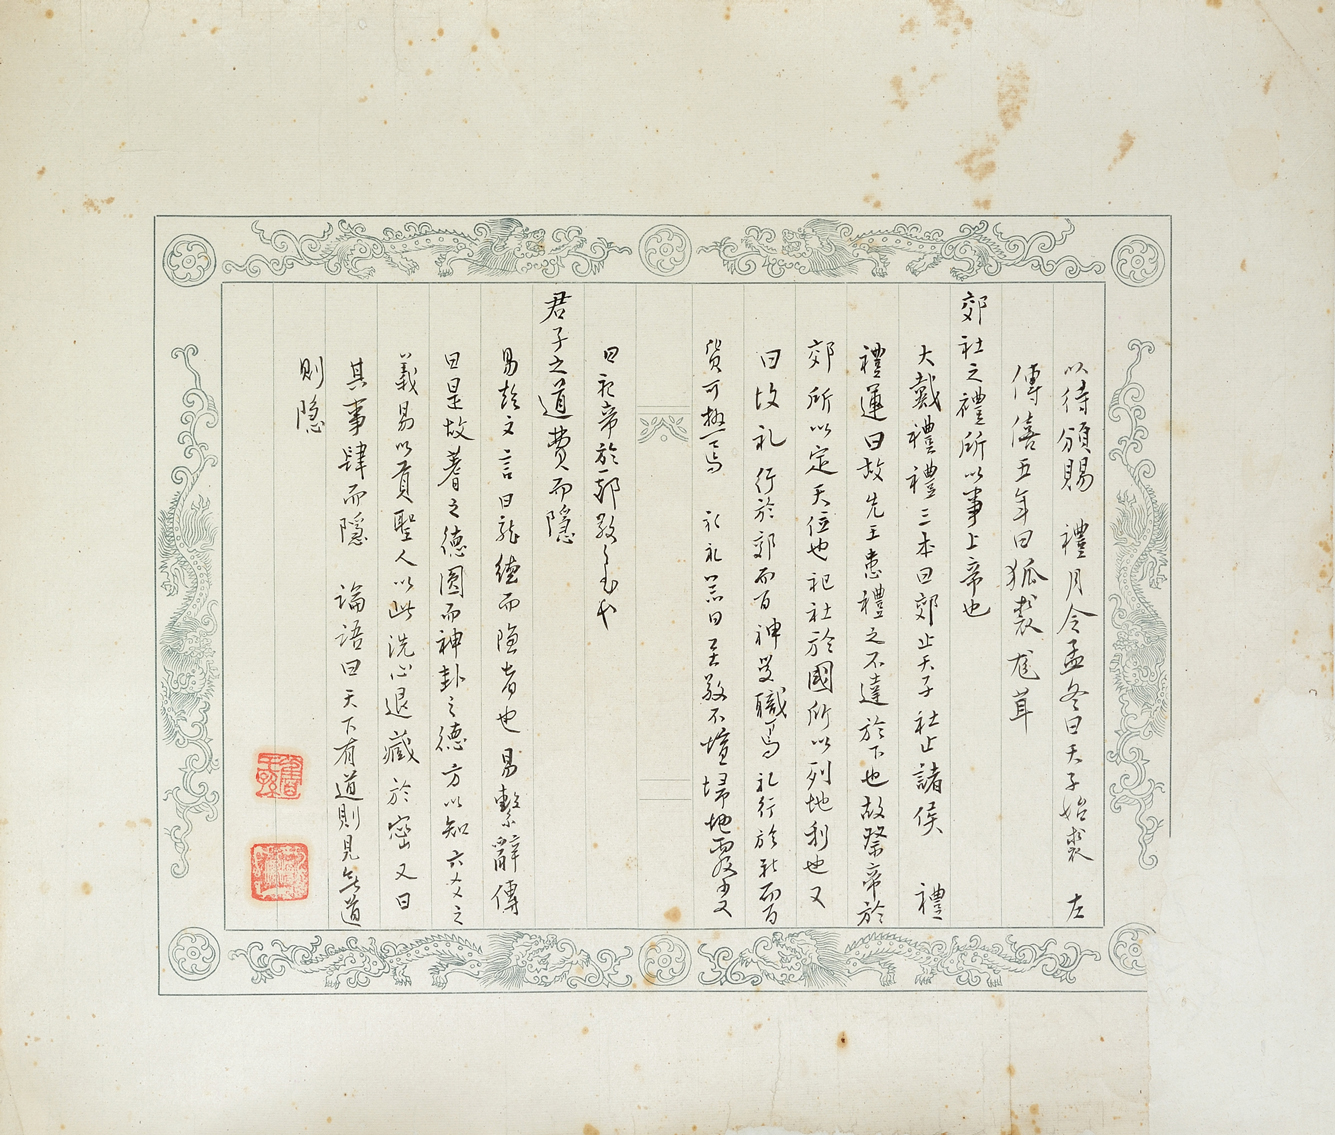 以待頒賜 禮月令孟冬曰天子始裘 左
傳僖五年曰狐裘尨茸
郊社之禮所以事上帝也
大戴禮禮三本曰郊止天子社止諸侯 禮
禮運曰故先王患禮之不達於下也故祭帝於
郊所以定天位也祀社於國所以列地利也又
曰故礼行於郊而百神受職焉礼行於社而百
貨可極焉 禮器曰至敬不壇埽地 又
曰祀帝於郊敬之至也
君子之道費而隱
易乾文言曰龍德而隐者也 易繫辭傳
曰是故蓍之德圓而神卦之德方以知六爻之
義易以貢聖人以此洗心退藏於密又曰
其事肆而隱 論語曰天下有道則見無道
則隐